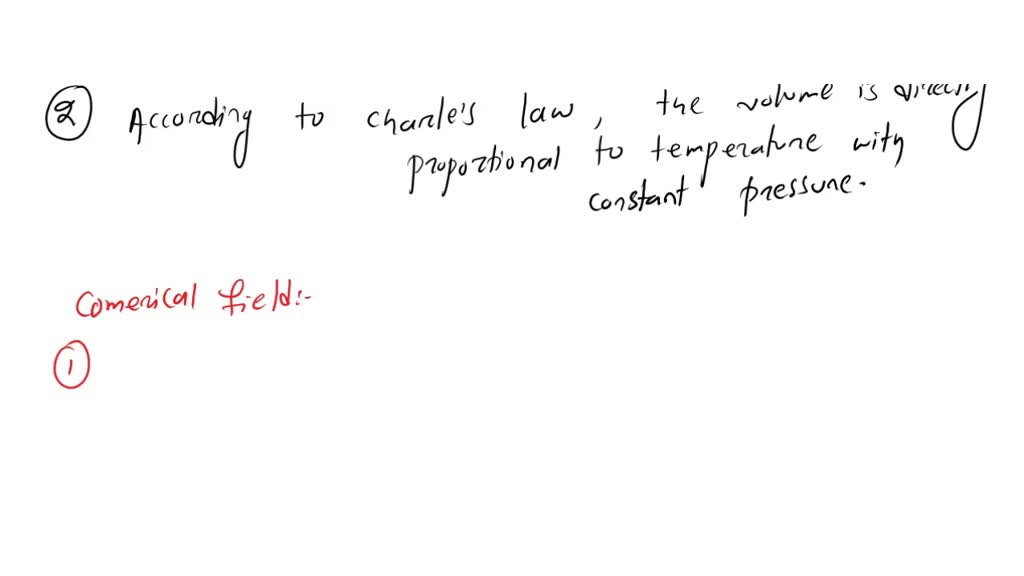 ② According to charle's law, the volume is directly
proportional to temperature with
constant pressure.
Comerical field:-
①